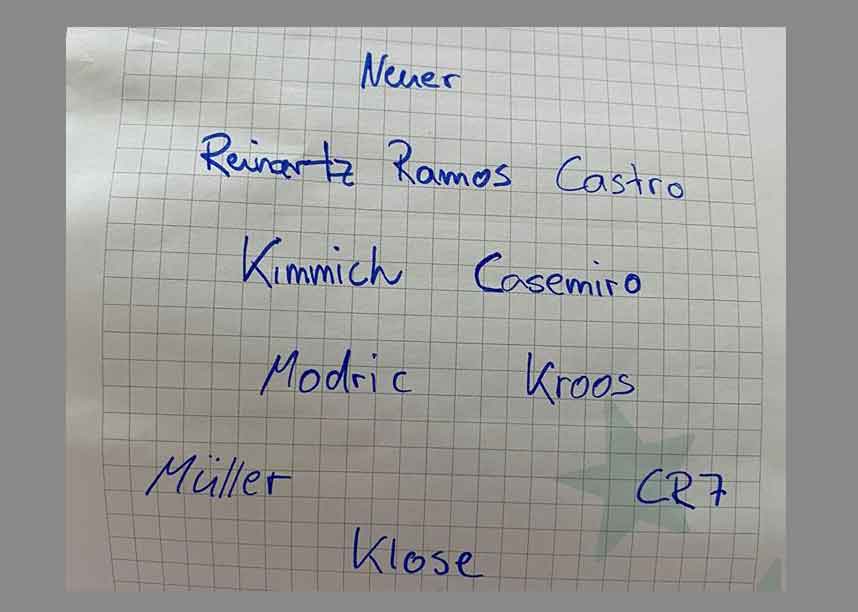 Neuer
Reinartz Ramos Castro
Kimmich Casemiro
Modric Kroos
Müller CR7
Klose